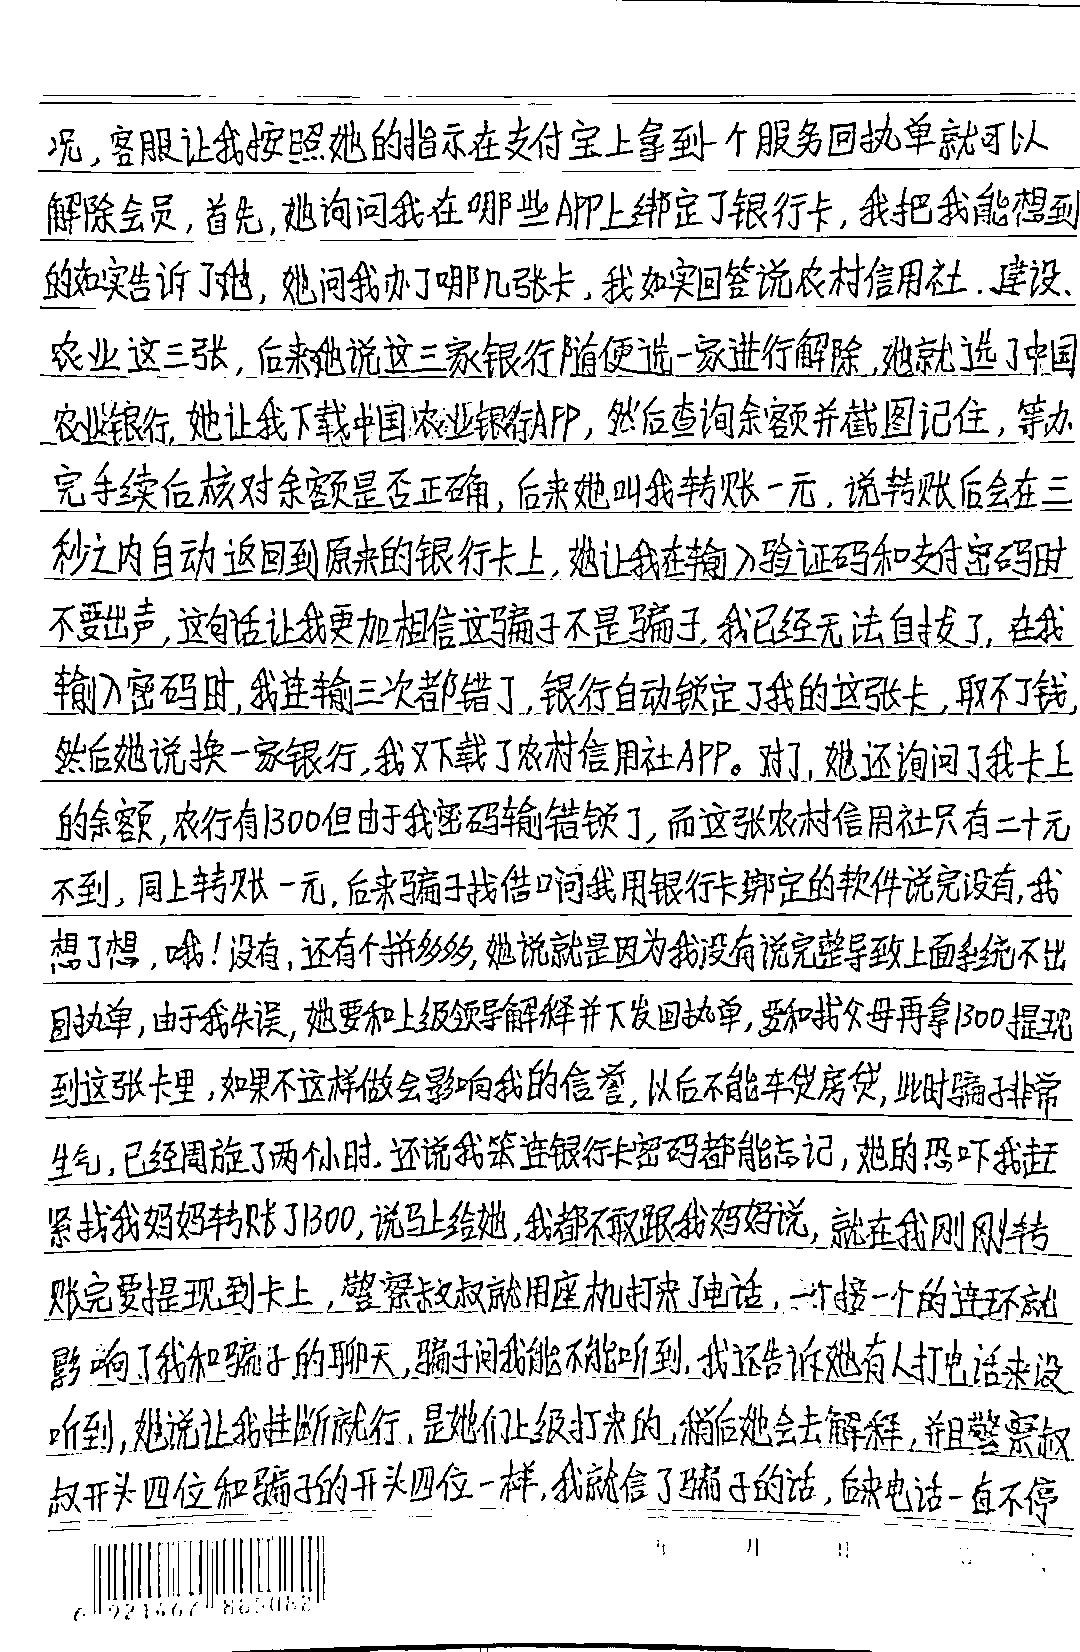 况，客服让我按照她的指示在支付宝上拿到一个服务回执单就可以
解除会员，首先，她询问我在哪些APP上绑定了银行卡，我把我能想到
的如实告诉了她，她问我办了哪几张卡，我如实回答说农村信用社、建设、
农业这三张，后来她说这三家银行随便选一家进行解除，她就选了中国
农业银行，她让我下载中国农业银行APP，然后查询余额并截图记住，等办
完手续后核对余额是否正确，后来她叫我转账一元，说转账后会在三
秒之内自动返回到原来的银行卡上，她让我在输入验证码和支付密码时
不要出声，这句话让我更加相信这骗子不是骗子，我已经无法自拔了，在我
输入密码时，我连输三次都错了，银行自动锁定了我的这张卡，取不了钱，
然后她说换一家银行，我又下载了农村信用社APP。对了，她还询问了我卡上
的余额，农行有1300但由于我密码输错锁了，而这张农村信用社只有二十元
不到，同上转账一元，后来骗子找借口问我用银行卡绑定的软件说完没有，我
想了想，哦！没有，还有个拼多多，她说就是因为我没有说完整导致上面系统不出
回执单，由于我失误，她要和上级领导解释并下发回执单，要和我父母再拿1300提现
到这张卡里，如果不这样做会影响我的信誉，以后不能车贷房贷，此时骗子非常
生气，已经周旋了两个小时，还说我笨连银行卡密码都能忘记，她的恐吓我赶
紧找我妈妈转账了1300，说马上给她，我都不敢跟我妈妈说，就在我刚刚转
账完要提现到卡上，警察叔叔就用座机打来了电话，一个接一个的连环就
影响了我和骗子的聊天，骗子问我能不能听到，我还告诉她有人打电话来没
听到，她说让我挂断就行，是她们上级打来的，稍后她会去解释，并且警察叔
叔开头四位和骗子的开头四位一样，我就信了骗子的话，后来电话一直不停
年 月 日